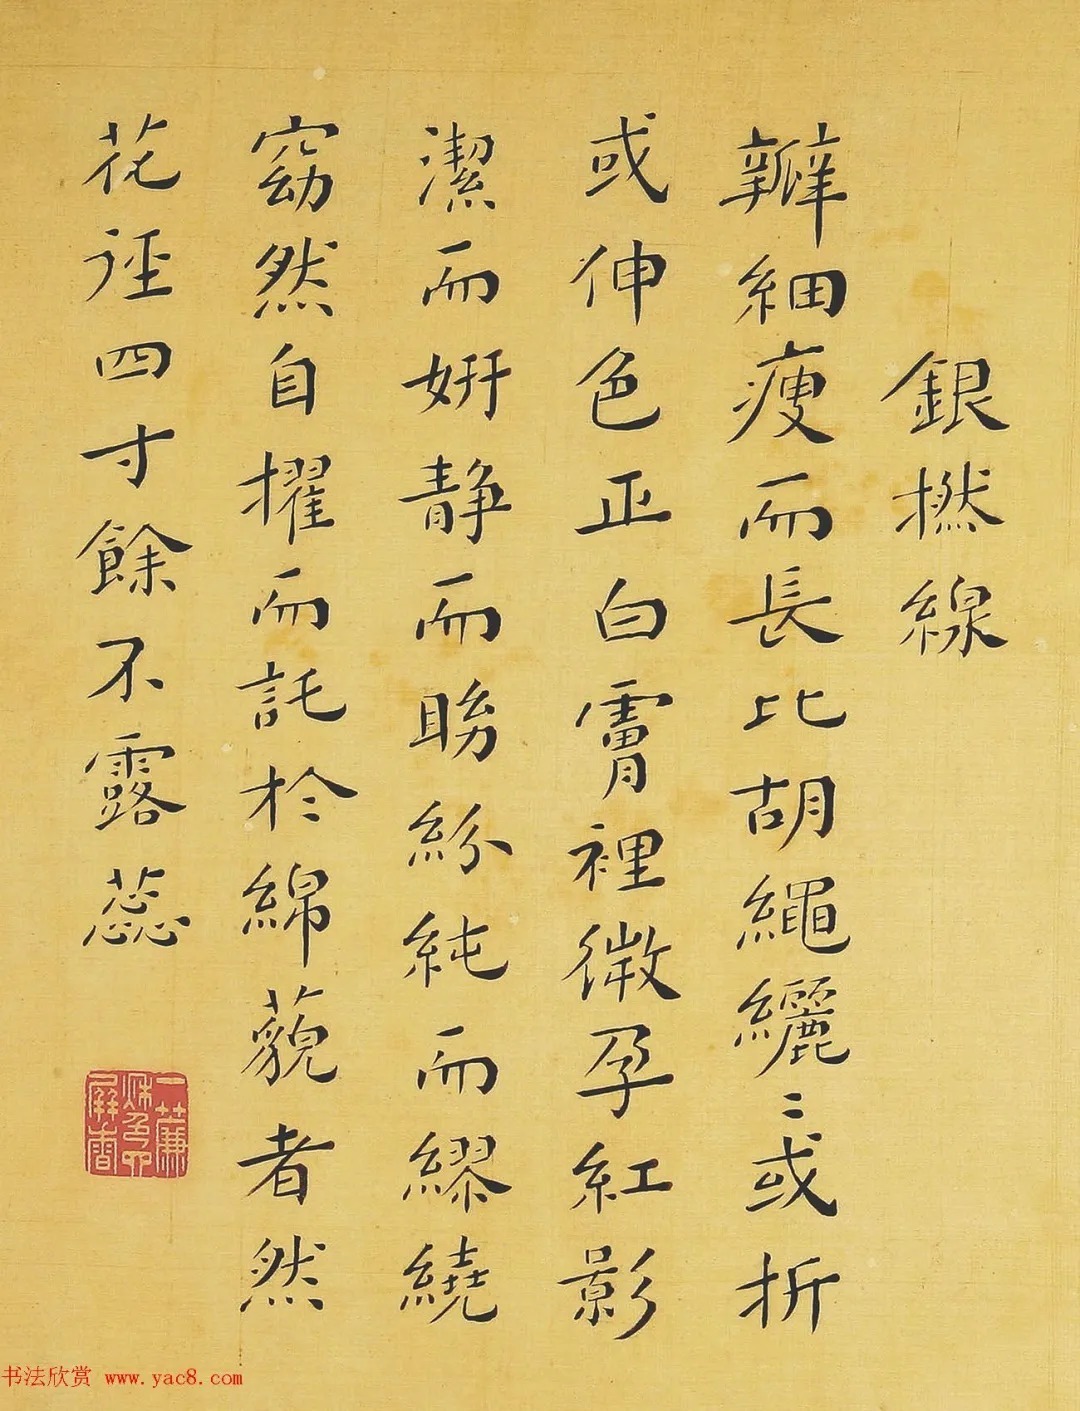 銀撚線
瓣細瘦而長比胡繩纚〻或折
或伸色正白霄裡微孕紅影
潔而妍静而眑紛純而繆繞
窈然自擢而託於綿藐者然
花徑四寸餘不露蕊
一簾秋色四屏香
书法欣赏 www.yac8.com